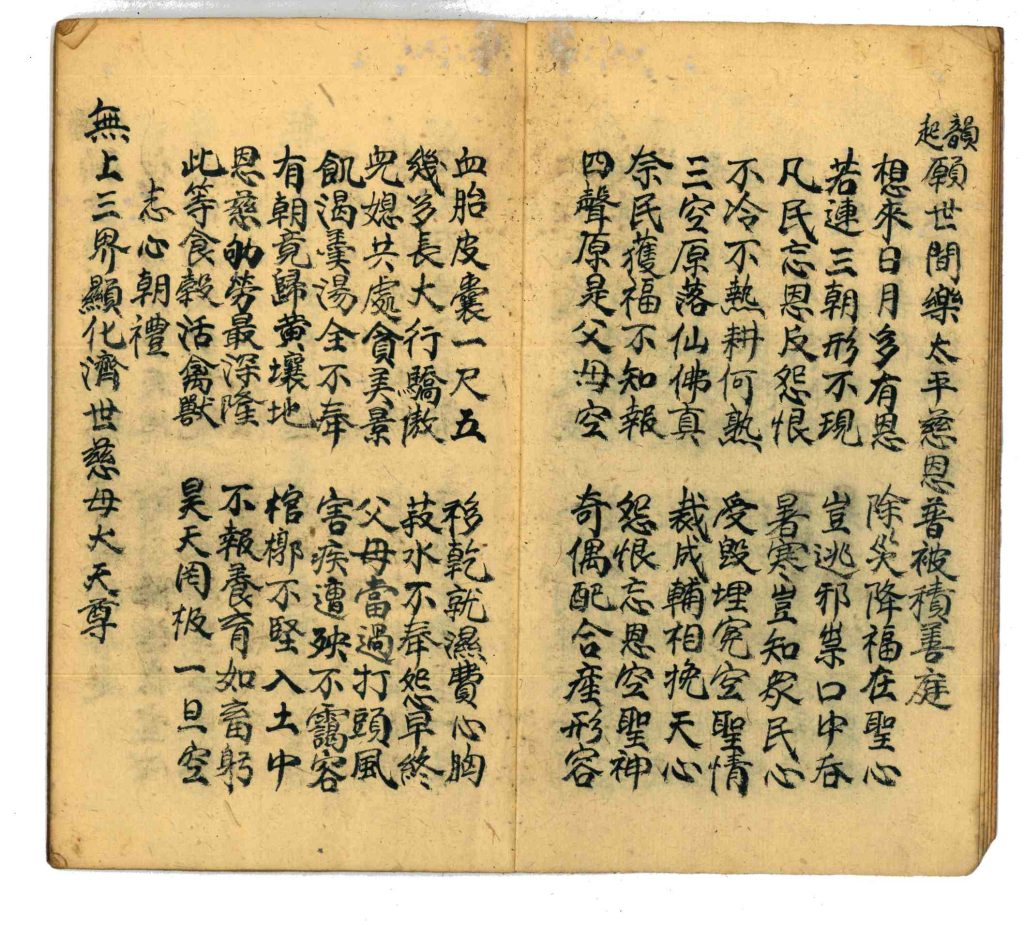 起韻
願世間樂太平慈恩普被積善庭
想來日月多有恩 除災降福在聖心
若連三朝形不現 豈逃邪祟口中吞
凡民忘恩反怨恨 暑寒豈知衆民心
不冷不熱耕何熟 受毀埋寃空聖情
三空原落仙佛真 裁成輔相挽天心
奈民獲福不知報 怨恨忘恩空聖神
四聲原是父母空 奇偶配合產形容
血胎皮囊一尺五 移乾就濕費心胸
幾多長大行驕傲 菽水不奉怨早終
兒媳共處貪美景 父母當過打頭風
飢渴羹湯全不奉 害疾遭殃不靄容
有朝竟歸黃壤地 棺槨不堅入土中
恩慈劬勞最深隆 不報養育如畜躬
此等食穀活禽獸 昊天罔极一旦空
志心朝禮
無上三界顯化濟世慈母大天尊